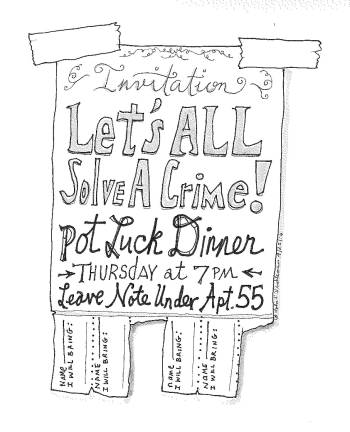 Invitation
Let's ALL
Solve A Crime!
Pot Luck Dinner
THURSDAY at 7 PM
Leave Note Under Apt. 55
NAME
I WILL BRING:
NAME
I WILL BRING:
name
I WILL BRING:
NAME
I WILL BRING: